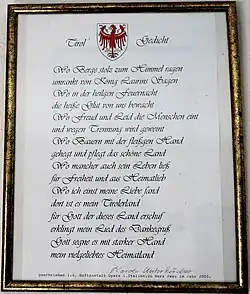 Tirol Gedicht
Wo Berge stolz zum Himmel ragen
umrankt von König Laurins Sagen
Wo in der heilgen Feuernacht
die heiße Glut von uns bewacht
Wo Freud und Leid die Menschen eint
und wegen Trennung wird geweint
Wo Bauern mit der fleißgen Hand
gehegt und pflegt das schöne Land
Wo mancher auch sein Leben ließ
für Freiheit und aus Heimatlieb
Wo ich einst meine Liebe fand
dort ist es mein Tirolerland
für Gott der dieses Land erschuf
erklingt mein Lied des Dankesgruß
Gott segne es mit starker Hand
mein vielgeliebtes Heimatland
geschrieben i.d. Haftanstalt Opera i.Italien im März im Jahr 2000.